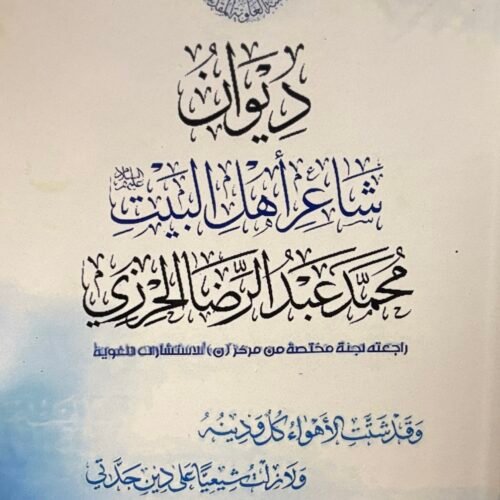 دِيوَانُ
شَاعِرِ أَهْلِ البَيْتِ عليهم السلام
مُحَمَّد عَبْدُ الرِّضَا الحِرْزِي
راجعته لجنة مختصة من مركز (ن) للاستشارات اللغوية
وَقَدْ شَتَّتِ الأَهْوَاءُ كُلَّ وَدِينُهُ
وَلَا زِلْتُ شِيعِيًّا عَلَى دِينِ جَدَّتِي